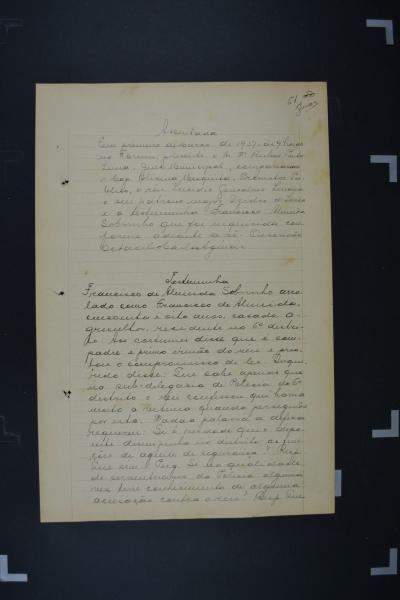 51
Assentada
Em primeiro de março de 1937, ás 9 horas
no Forum, presente o m. Dr. Rubens
Lima, Juiz Municipal, compareceram
o Cap. Promotor Pu-
blico, o réo Gonçalves
e seu patrono major
e a testemunha Francisco Almeida
Sobrinho que foi inquirida con-
forme adiante se vê. Escrivão
Testemunha
Francisco de Almeida Sobrinho arro-
lado como Francisco de Almeida,
cincoenta e oito anos, casado, a-
gricultor, residente no 6º distri-
to. Aos costumes disse que é com-
padre e primo irmão do réu e pres-
tou o compromisso da lei. Inqui-
rido disse: Que sabe apenas que
na sub-delegacia de Policia do 6º
distrito o réu confessou que havia
morto a vitima quando perseguido
por esta. Dada a palavra a defesa
requereu: Se é verdade que o depo-
ente desempenha no distrito as fun-
ções de agente de segurança? Resp.
Que sim. Perg. Se na qualidade
de serventuario da Policia alguma
vez teve conhecimento de alguma
acusação contra o réu? Resp. Que